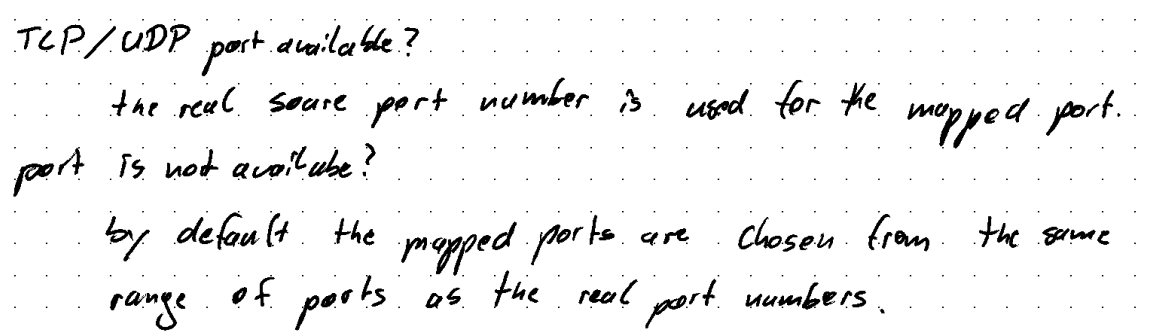 TCP/UDP port available?
the real soure port number is used for the mapped port.
port is not availabe?
by default the mapped ports are chosen from the same
range of ports as the real port numbers.